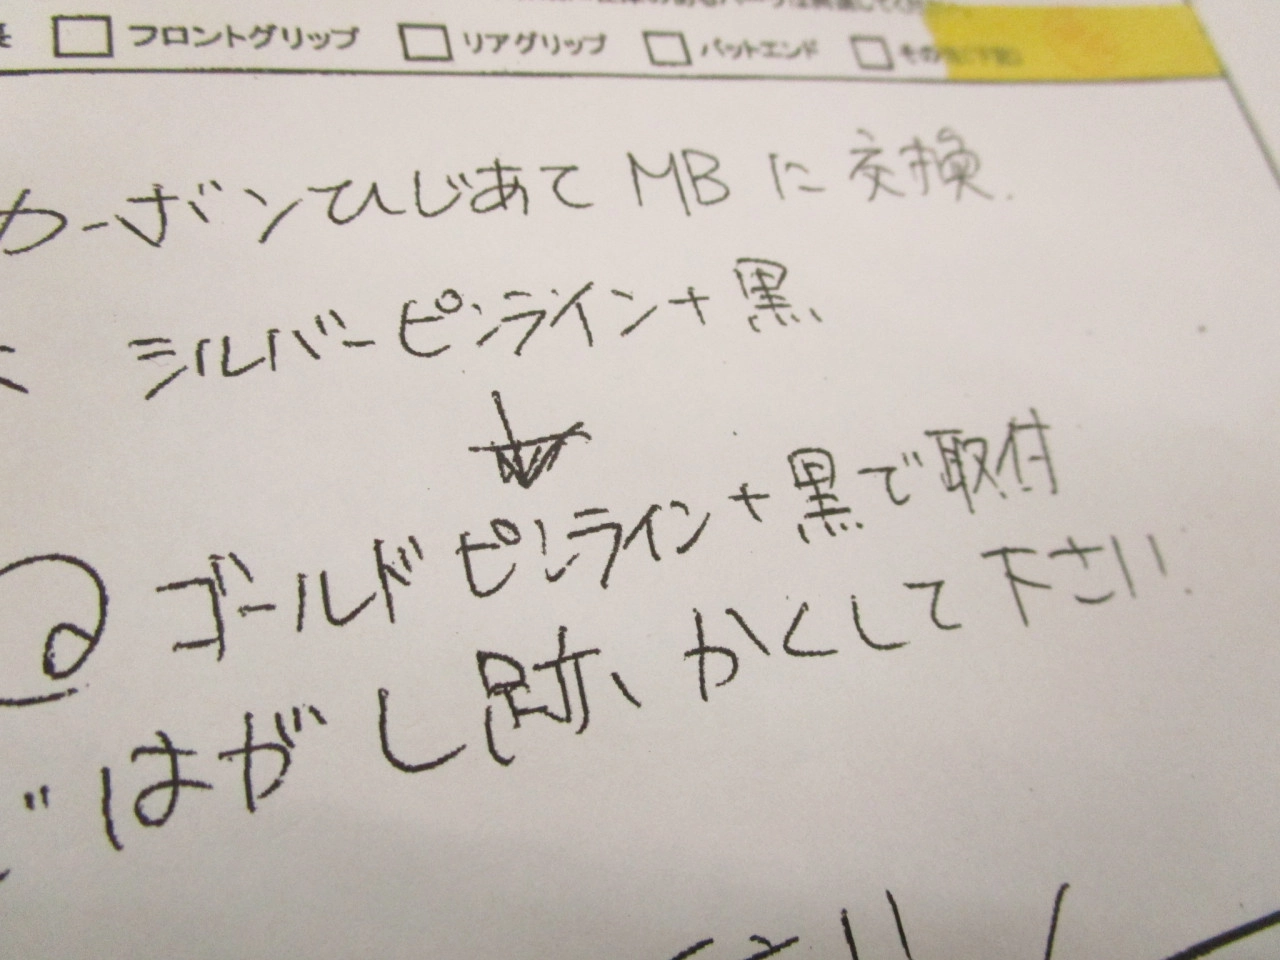 □ フロントグリップ □ リアグリップ □ バットエンド □ その他(下記)
カーボンひじあて MB に交換.
シルバーピンライン+黒
↓
ゴールドピンライン+黒で取付
はがし跡、かくして下さい.